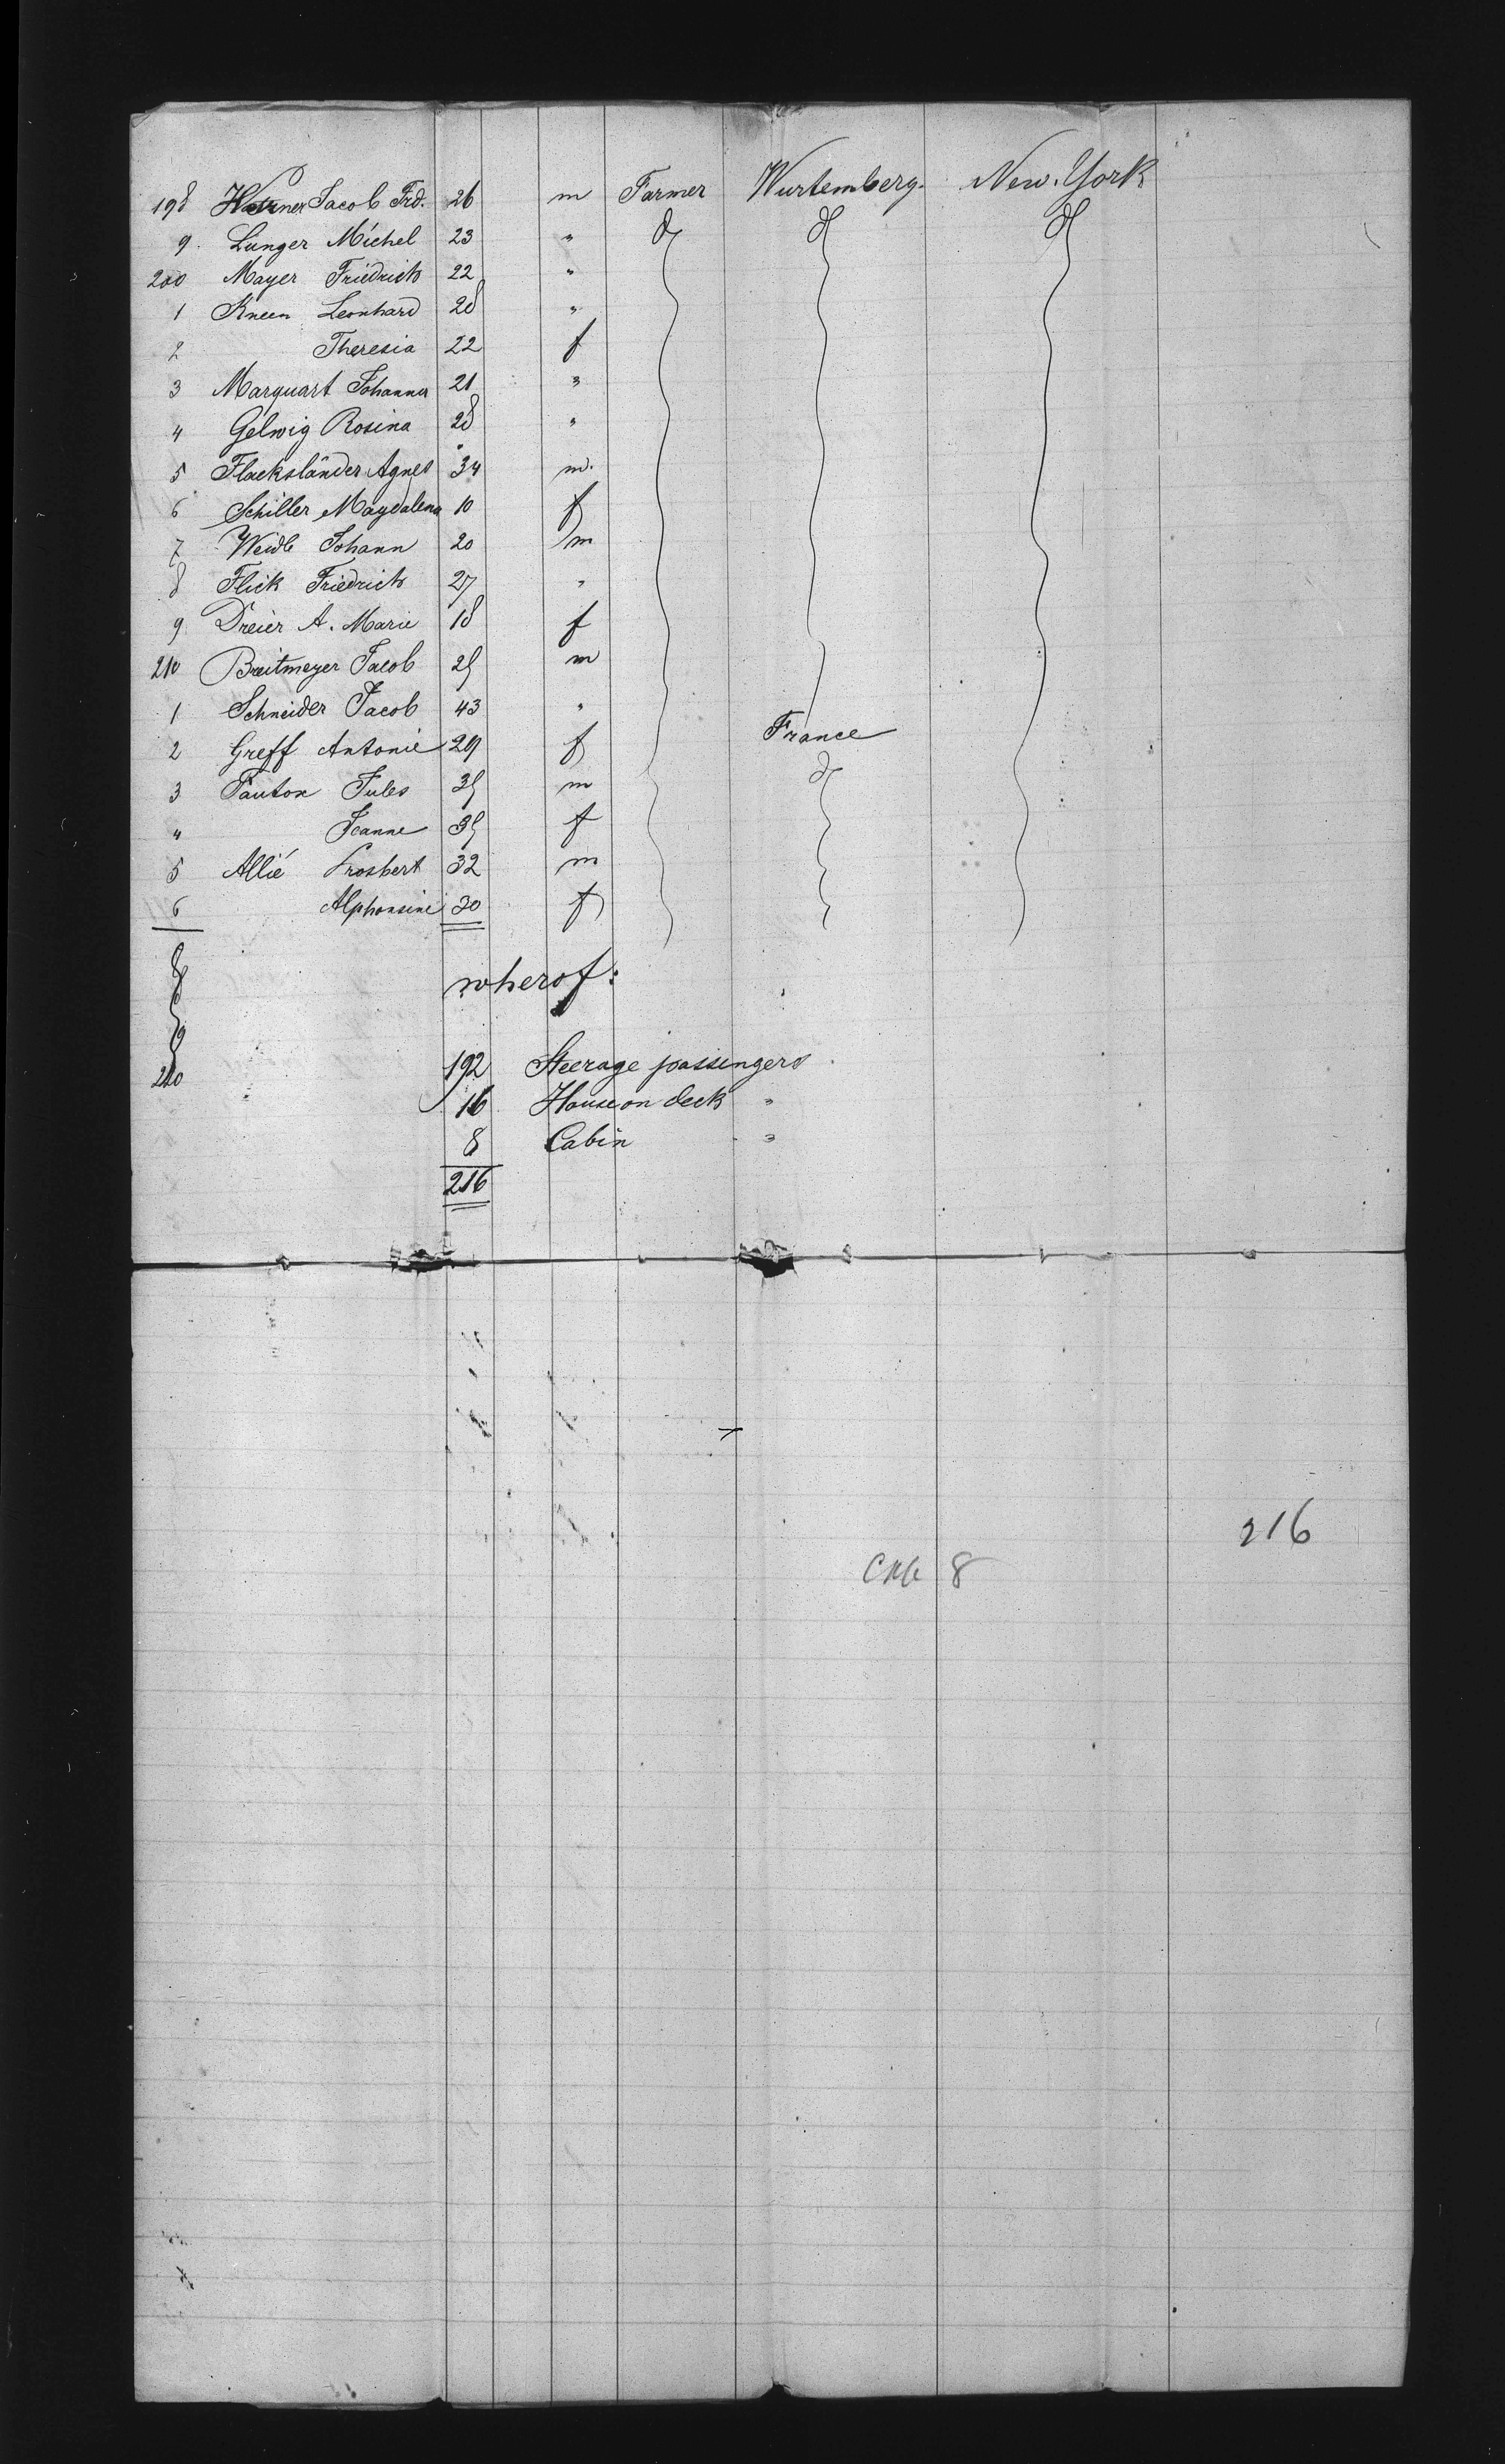 198 Werner Jacob Frd. 26 m Farmer Wurtemberg. New. York
9. Lünger Michel 23 " do do do
200 Mayer Friedrich 22 "
1 Kneen Leonhard 28 "
2 Theresia 22 f
3 Marquart Johanna 21 "
4 Gelwig Rosina 28 "
5 Flacksländer Agnes 34 m.
6 Schiller Magdalena 10 f
7 Weidle Johann 20 m
8 Flick Friedrich 27 "
9 Dreier A. Marie 18 f
210 Breitmeyer Jacob 25 m
1 Schneider Jacob 43 "
2 Greff Antonie 29 f France
3 Pauton Jules 35 m do
4 Jeanne 35 f
5 Allié Prosbert 32 m
6 Alphonsine 30 f
wherof:
192 Steerage passengers
220
16 House on deck "
8 Cabin "
216
216
8